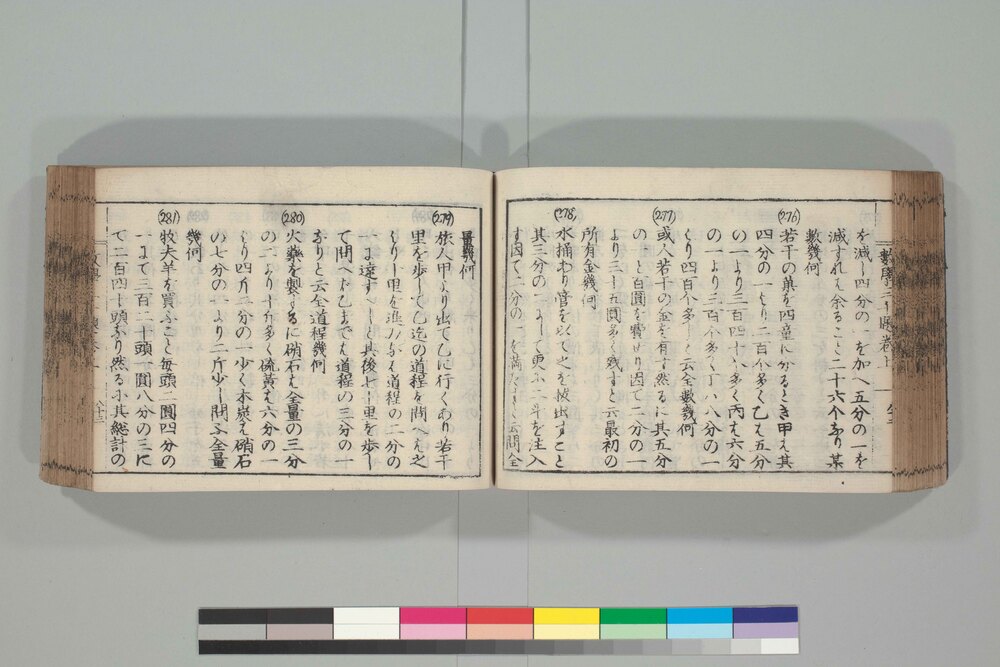 を減し四分の一を加へ五分の一を
減ずれは余ること二十六个なり某
數幾何
(276)
若干の菓を四童に分るとき甲は其
四分の一より二百个多く乙は五分
の一より三百四十个多く丙は六分
の一より三百个多く丁は八分の一
より四百个多しと云全數幾何
(277)
或人若干の金を有す然るに其五分
の一と百圓を費せり因て二分の一
より三十五圓多く残すと云最初の
所有金幾何
(278)
水桶あり管を以て之を放出すこと
其三分の一にして更に二斗を注入
す因て二分の一を満たすと云問全
量幾何
(279)
旅人甲より出て乙に行くあり若干
里を歩して乙迄の道程を問へは之
より十里を進みなは道程の二分の
一に達すへしと其後七十里を歩し
て問へは乙まては道程の三分の一
なりと云全道程幾何
(280)
火藥を製するに硝石は全量の三分
の二より十斤多く硫黄は六分の一
より四斤二分の一少く木炭は硝石
の七分の一より二斤少し問ふ全量
幾何
(281)
牧夫羊を買ふこと毎頭二圓四分の
一まて三百二十頭一圓八分の三に
て二百四十頭なり然るに其総計の